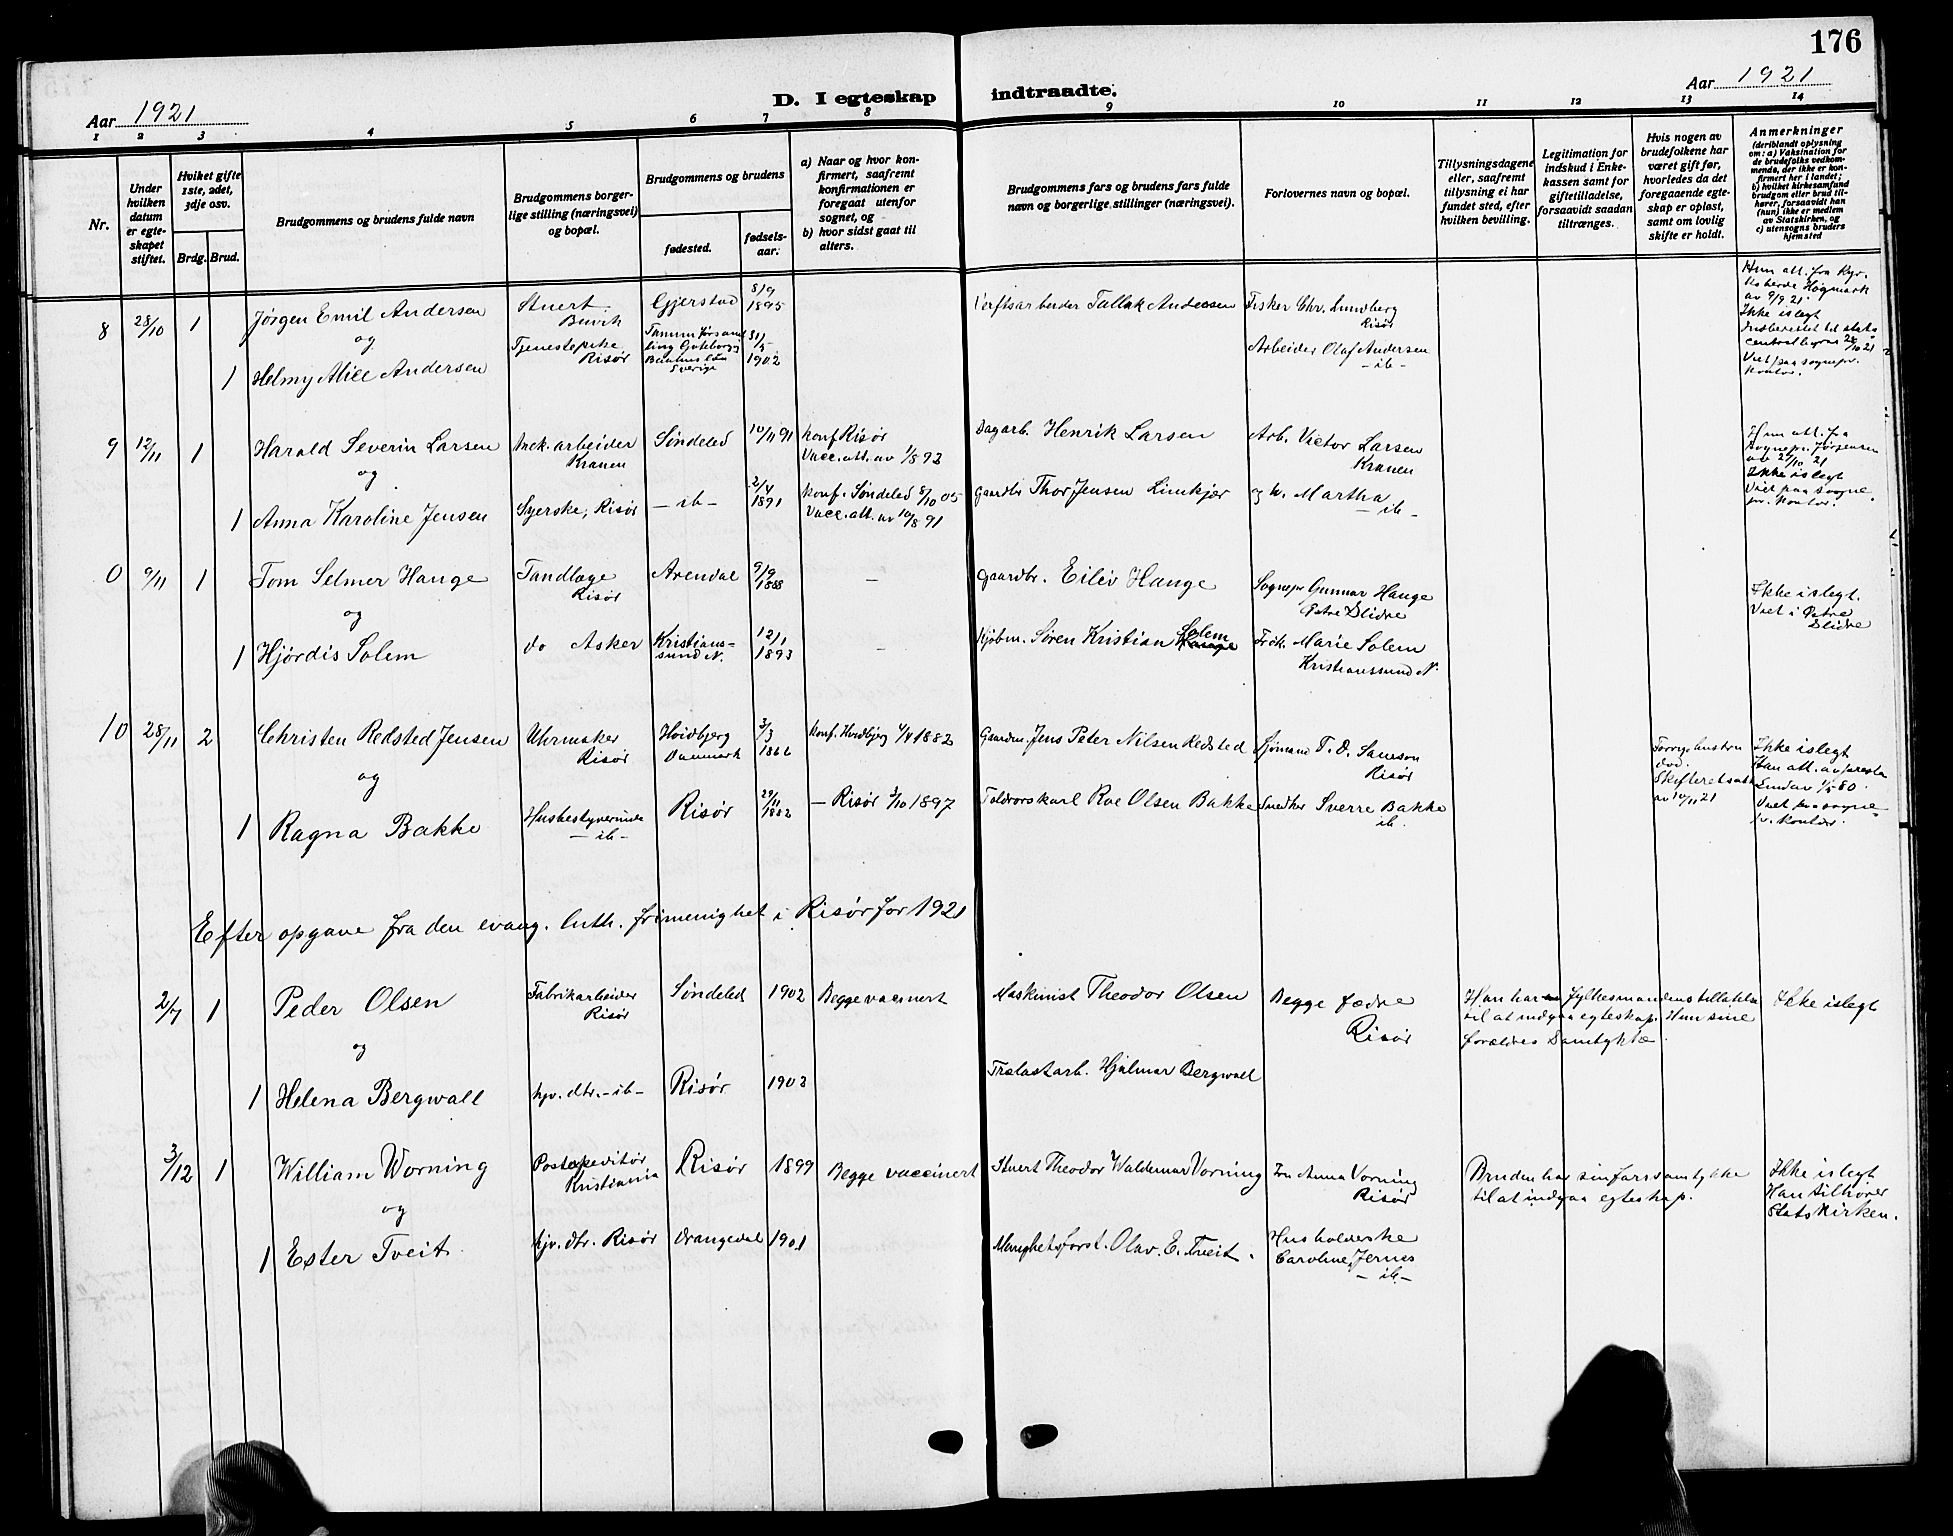 176
Aar 1921
D. I egteskap indtraadte.
Aar 1921
1 2 3 4 5 6 7 8 9 10 11 12 13 14
Nr.
Under hvilken datum er egteskapet stiftet.
Hviket gifte 1ste, 2det, 3dje osv.
Brdg. Brud.
Brudgommens og brudens fulde navn
Brudgommens borgerlige stilling (næringsvei) og bopæl.
Brudgommens og brudens
fødested.
fødselsaar.
a) Naar og hvor konfirmert, saafremt konfirmationen er foregaat utenfor sognet, og
b) hvor sidst gaat til alters.
Brudgommens fars og brudens fars fulde navn og borgerlige stillinger (næringsvei).
Forlovernes navn og bopæl.
Tillysningsdagene eller, saafremt tillysning ei har fundet sted, efter hvilken bevilling.
Legitimation for indskud i Enkekassen samt for giftetilladelse, forsaavidt saadan tiltrænges.
Hvis nogen av brudefolkene har været gift før, hvorledes da det foregaaende egteskap er opløst, samt om lovlig skifte er holdt.
Anmerkninger (deriblandt oplysning om: a) Vaksination for de brudefolks vedkommende, der ikke er konfirmert her i landet; b) hvilket kirkesamfund brudgom eller brud tilhører, forsaavidt han (hun) ikke er medlem av Statskirken, og c) utensogns bruders hjemsted
8 28/10 1 Jørgen Emil Andersen Stuert Gjerstad 8/9 1895 Verftsarbeider Tallak Andersen Fisker Chr. Lundberg Risør
og
1 Helmy Alice Andersen Tjenestepike Risør Sverige 31/5 1902 Arbeider Olaf Andersen -ib-
Hun att. fra
av 9/9 21.
Ikke i slegt
Viet paa sognepr. kontor.
9 12/11 1 Harald Severin Larsen arbeider Kranen Søndeled 10/11 91 konf Risør Vacc. att. av 1/8 93 Dagarb. Henrik Larsen Arb. Victor Larsen Kranen
og
1 Anna Karoline Jensen Syerske, Risør -ib- 2/4 1891 Konf. Søndeled 8/10 05 Vacc. att. av 10/8 91 Gaardbr Thor Jensen Limkjær og h. Martha -ib-
Hun att. fra sognepr. Jørgensen
Ikke i slegt
Viet paa sognepr. kontor.
0 9/11 1 Tom Selmer Hauge Tandlæge Risør Arendal 9/9 1888 - Gaardbr. Eiliv Hauge Sognepr Gunnar Hauge Østre Slidre
og
1 Hjørdis Solem do Asker Kristianssund N. 12/1 1893 - Kjøbm. Søren Kristian Solem Frøk. Marie Solem Kristianssund N.
Ikke i slegt.
Viet i Østre Slidre
10 28/11 2 Christen Redsted Jensen Uhrmaker Risør Hvidbjerg Danmark 3/3 1866 Konf. Hvidbjerg 1882 Gaardm. Jens Peter Nilsen Redsted Sjømand T. O. Samson Risør
og
1 Ragna Bakke Husbestyrerinde -ib- Risør 29/11 1882 - Risør 3/10 1897 Toldvorskarl Roe Olsen Bakke Snedker Sverre Bakke ib.
Forrige hustru død. Skifteretsatt av 10/11 21
Ikke i slegt
Viet paa sognepr. kontor.
Efter opgave fra den evang. luth. frimenighet i Risør for 1921
2/7 1 Peder Olsen Fabrikarbeider Risør Søndeled 1902 Begge vaccinert Maskinist Theodor Olsen Begge fædre Risør
Han har fylkesmandens tillatelse til at indgaa egteskap. Hun sine forældres Samtykke.
Ikke i slegt
og
1 Helena Bergwall hjv. dtr. -ib- Risør 1903 Trælastarb. Hjalmar Bergwall
3/12 1 William Worning Postexpeditør Kristiania Risør 1899 Begge vaccinert Stuert Theodor Waldemar Vorning Fru Anna Vorning Risør
Bruden har sin fars samtykke til at indgaa egteskap.
Ikke i slegt
Han tilhører Statskirken.
og
1 Ester Tveit hjv. dtr. Risør Drangedal 1901 Menighetsforst. Olav. E. Tveit. Husholderske Caroline Jernes -ib-